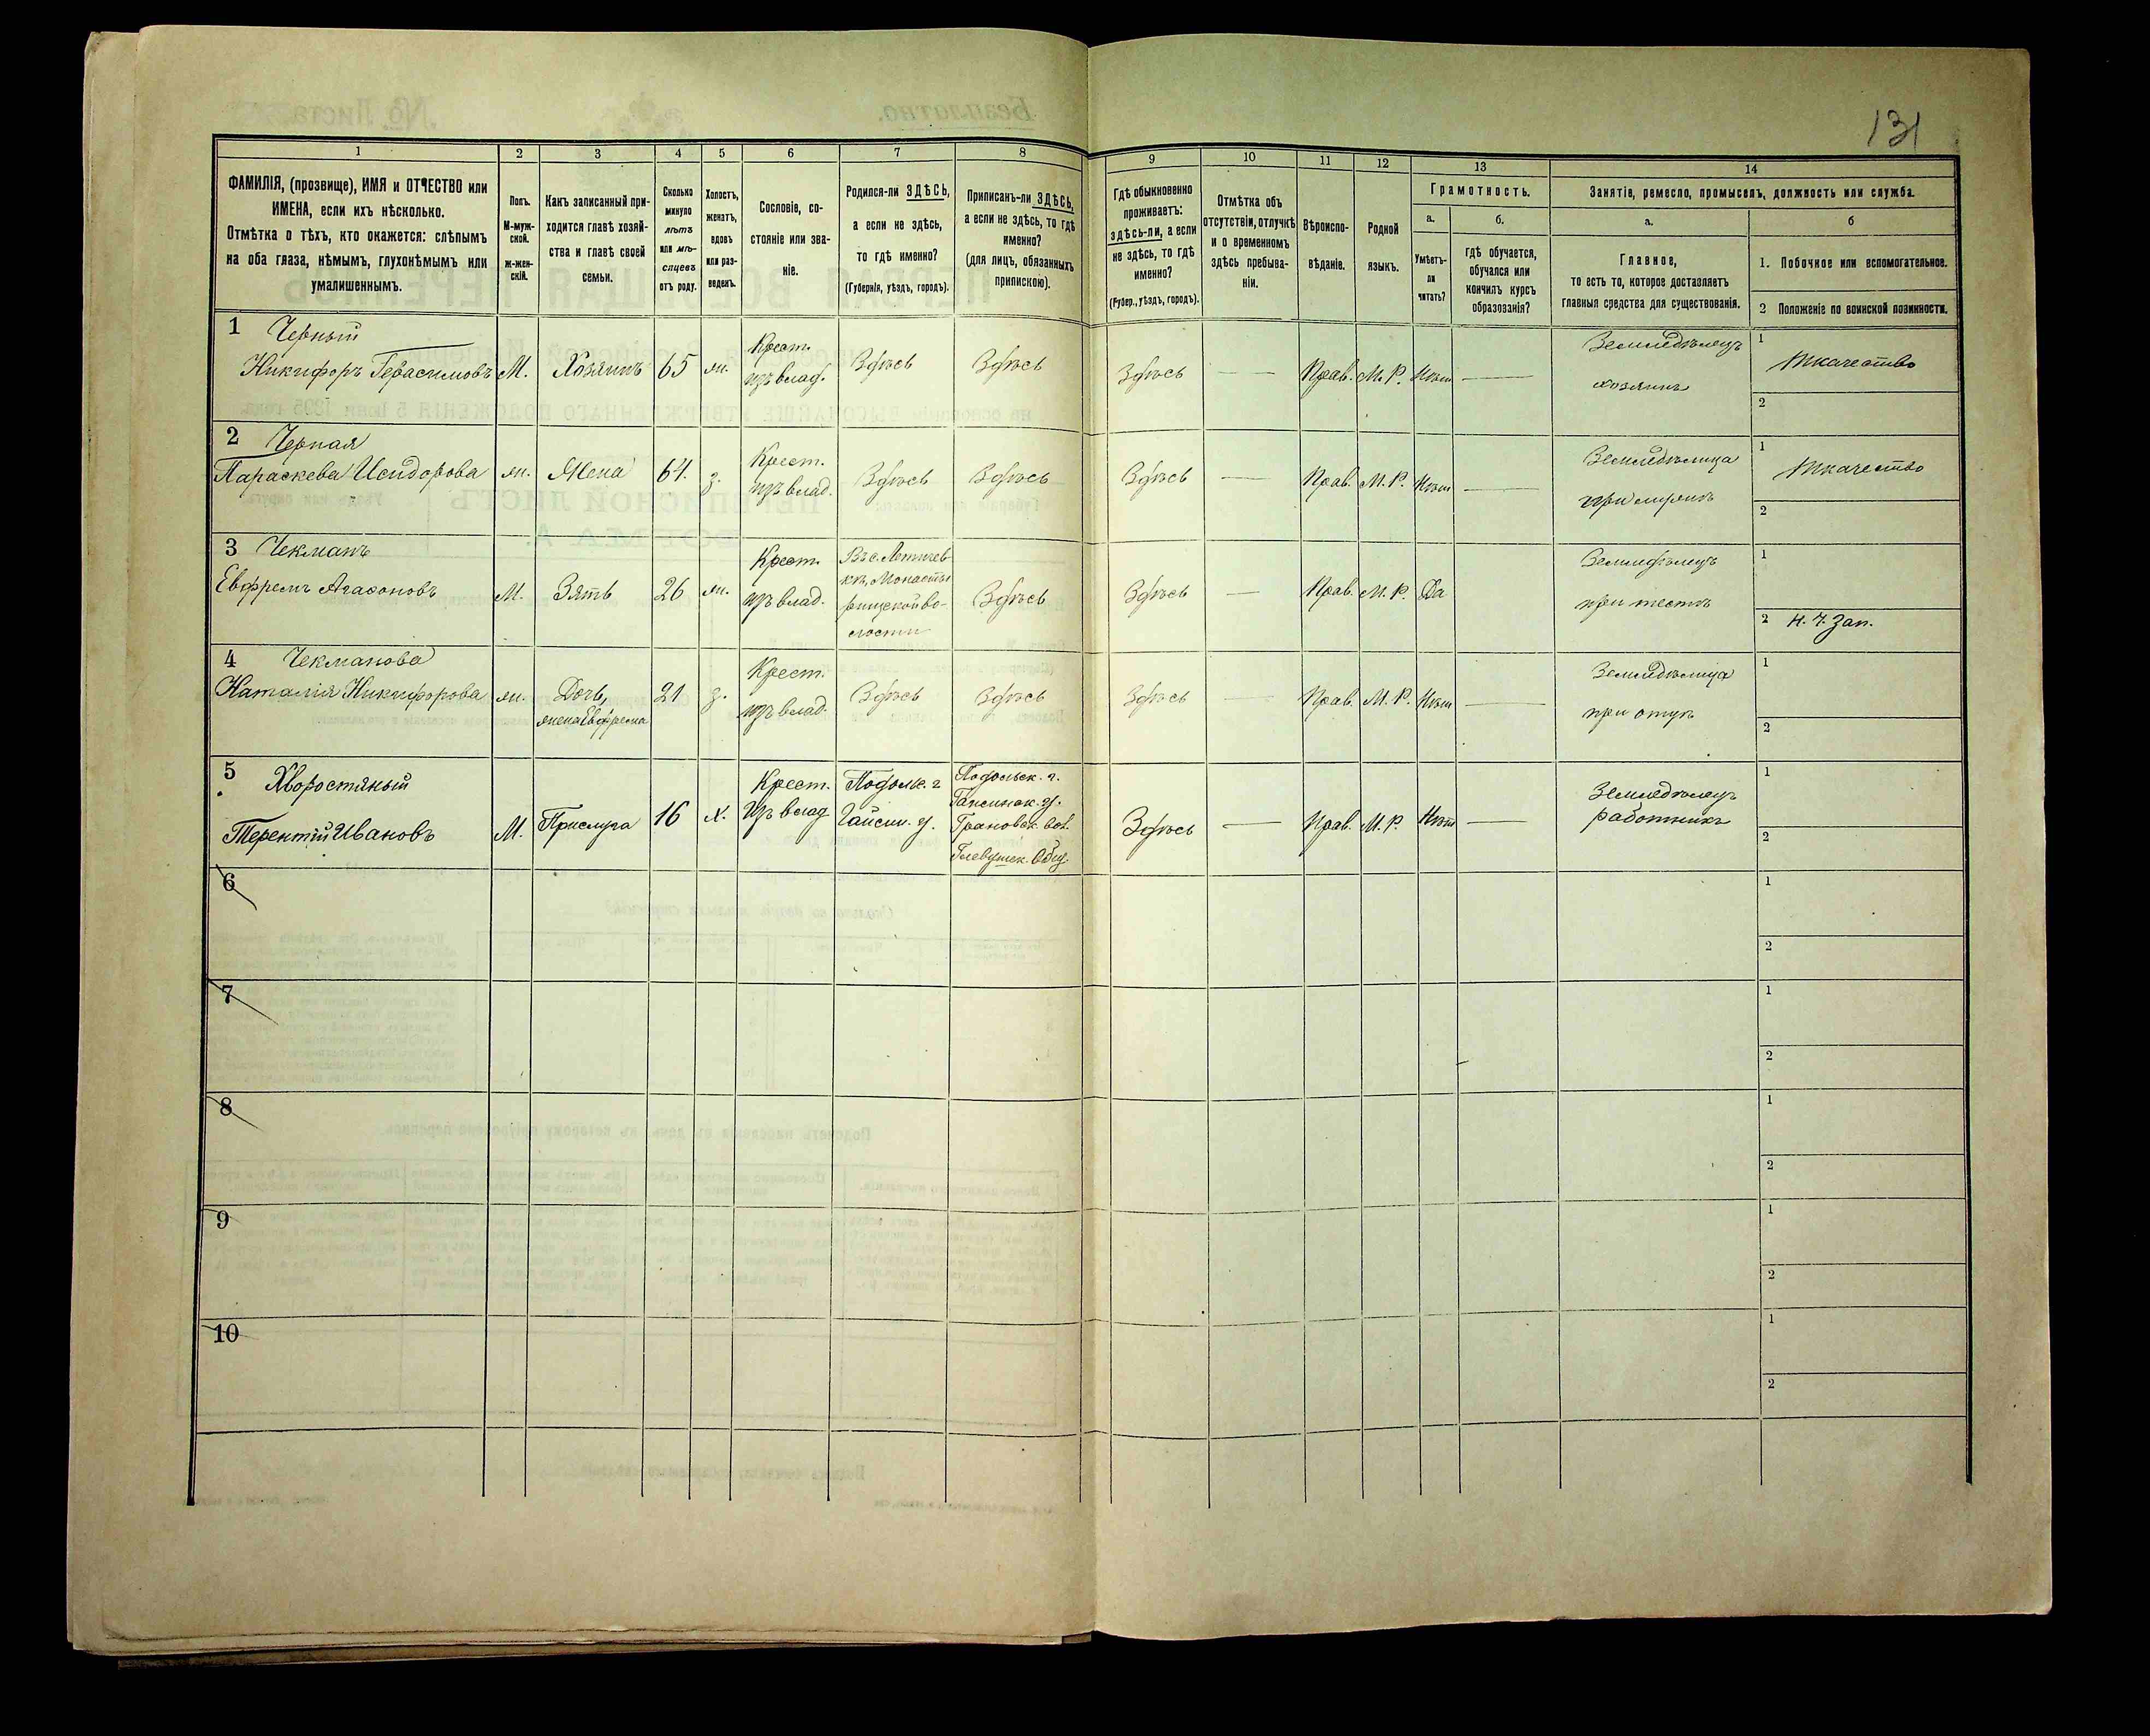 131
1 2 3 4 5 6 7 8 9 10 11 12 13 14
ФАМИЛІЯ, (прозвище), ИМЯ и ОТЧЕСТВО или
ИМЕНА, если ихъ нѣсколько.
Отмѣтка о тѣхъ, кто окажется: слѣпымъ
на оба глаза, нѣмымъ, глухонѣмымъ или
умалишеннымъ.
Полъ.
М-муж-
ской.
ж-жен-
скій.
Какъ записанный при-
ходится главѣ хозяй-
ства и главѣ своей
семьи.
Сколько
минуло
лѣтъ
или мѣ-
сяцевъ
отъ роду.
Холостъ,
женатъ,
вдовъ
или раз-
веденъ.
Сословіе, со-
стояніе или зва-
ніе.
Родился-ли ЗДѢСЬ,
а если не здѣсь,
то гдѣ именно?
(Губернія, уѣздъ, городъ).
Приписанъ-ли ЗДѢСЬ,
а если не здѣсь, то гдѣ
именно?
(для лицъ, обязанныхъ
припискою).
Гдѣ обыкновенно
проживаетъ:
здѣсь-ли, а если
не здѣсь, то гдѣ
именно?
(Губер., уѣздъ, городъ).
Отмѣтка объ
отсутствіи, отлучкѣ
и о временномъ
здѣсь пребыва-
ніи.
Вѣроиспо-
вѣданіе.
Родной
языкъ.
Грамотность.
а.
Умѣетъ-
ли
читать?
б.
Гдѣ обучается,
обучался или
кончилъ курсъ
образованія?
Занятіе, ремесло, промыселъ, должность или служба.
а.
Главное,
то есть то, которое доставляетъ
главныя средства для существованія.
б
1. Побочное или вспомогательное.
2 Положеніе по воинской повинности.
1 Черный
Никифоръ Герасимовъ М. Хозяинъ 65 ж. Крест.
изъ влад. Здѣсь Здѣсь Здѣсь — Прав. М. Р. Нѣт — Земледѣлецъ
хозяинъ 1 Ткачество
2
2 Черная
Параскева Исидорова ж. Жена 64. з. Крест.
изъ влад. Здѣсь Здѣсь Здѣсь — Прав. М. Р. Нѣт — Земледѣлица
при мужѣ 1 Ткачество
2
3 Чекманъ
Евфремъ Агаѳоновъ М. Зять 26 ж. Крест.
изъ влад. Въ с. Летичев-
кѣ, Монасты-
рищской во-
лости Здѣсь Здѣсь — Прав. М. Р. Да Земледѣлецъ
при тестѣ 1
2 Н. Ч. Зап.
4 Чекманова
Наталія Никифорова ж. Дочь,
жена Евфрема 21 з. Крест.
изъ влад. Здѣсь Здѣсь Здѣсь — Прав. М. Р. Нѣт — Земледѣлица
при отцѣ 1
2
5 Хворостяный
Терентій Ивановъ М. Прислуга 16 х. Крест.
Изъ влад Подольк. г
Гайсин. у. Подольск. г.
Гайсинск. у.
Грановск. вол.
Общ. Здѣсь — Прав. М. Р. Нѣт — Земледѣлецъ
работникъ 1
2
6 1
2
7 1
2
8 1
2
9 1
2
10 1
2